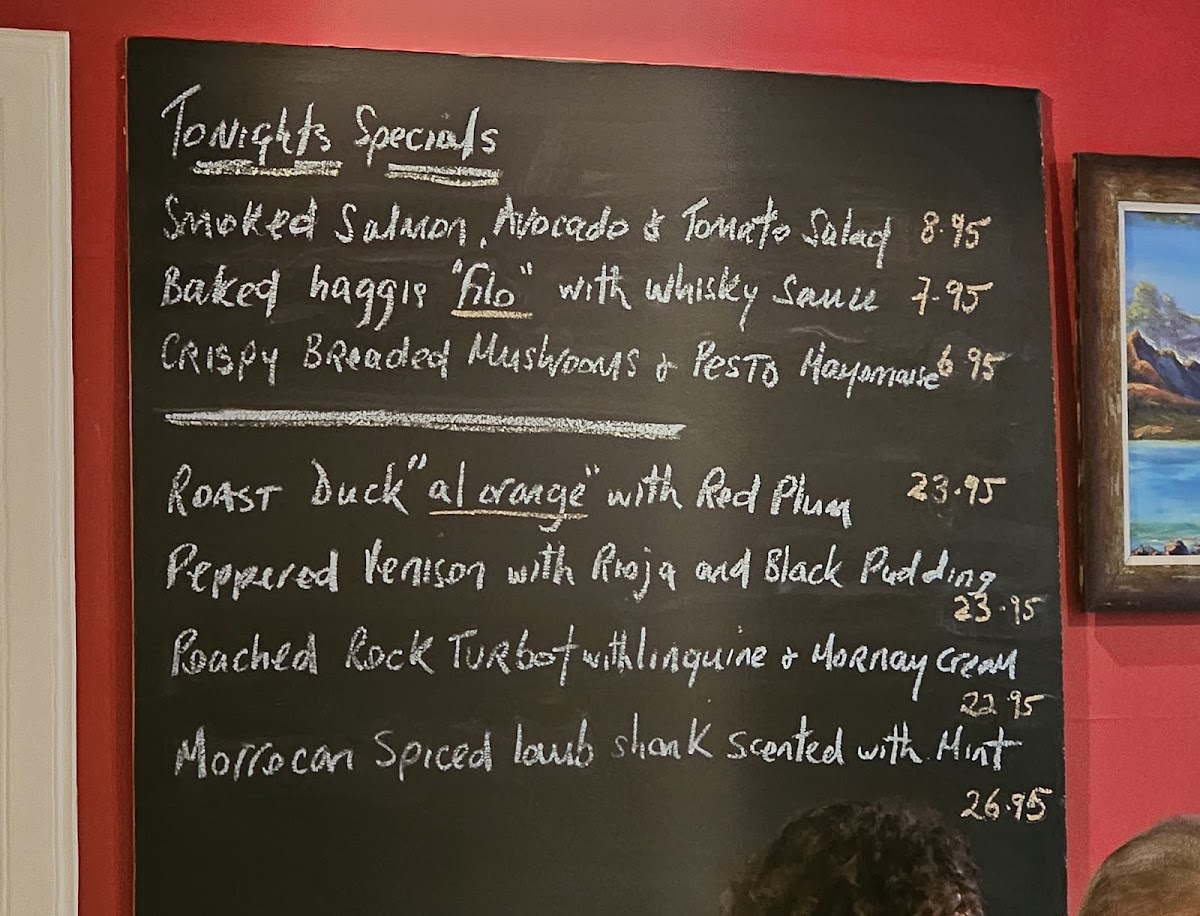 Tonights Specials
Smoked Salmon, Avocado & Tomato Salad 8.95
Baked haggis "filo" with whisky Sauce 7.95
CRISPY BReaded MushrooMS & PESTO Mayonnaise 6.95
ROAST Duck "al orange" with Red Plum 23.95
Peppered Venison with Rioja and Black Pudding
23.95
Poached Rock TURBOT with linguine & MORNAY CReam
22.95
Morrocan Spiced lamb shank scented with Mint
26.95